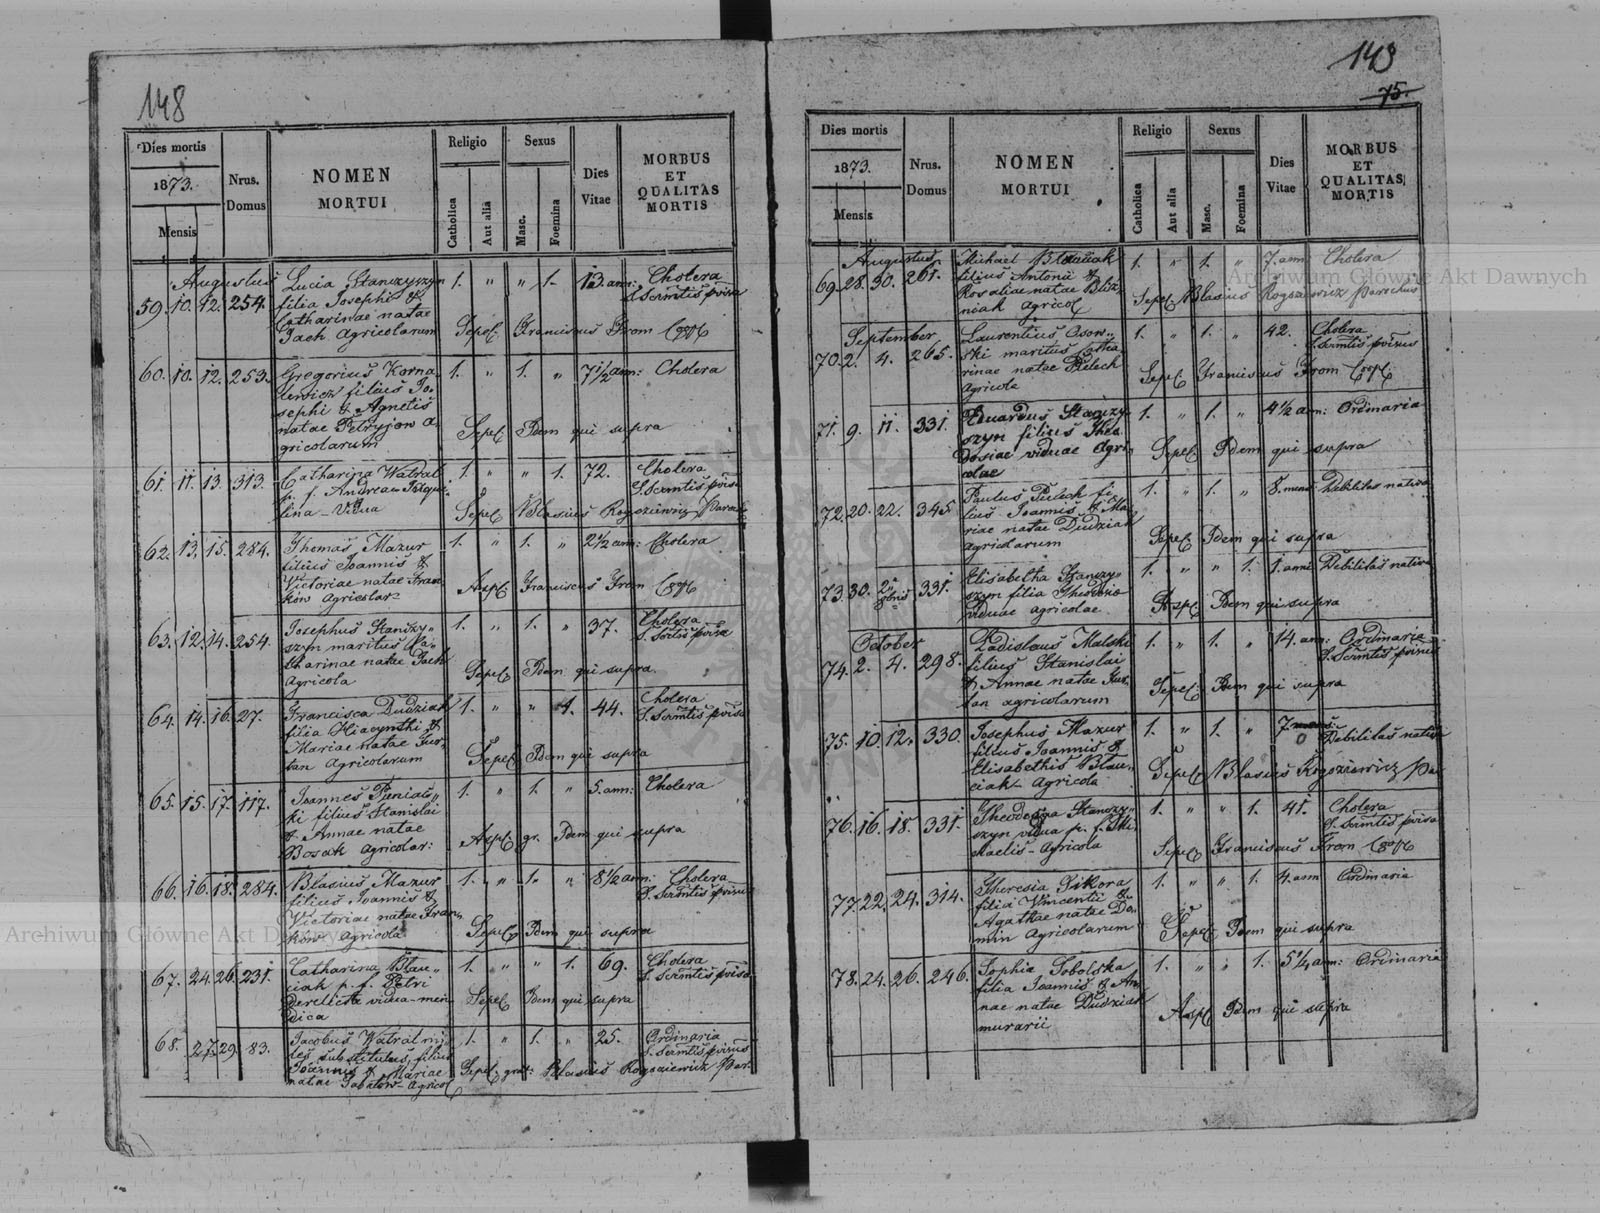 148
Dies mortis
1873.
Mensis
Nrus.
Domus
NOMEN
MORTUI
Religio
Catholica
Aut alia
Sexus
Masc.
Foemina
Dies
Vitae
MORBUS
ET
QUALITAS
MORTIS
Augustus
59. 10. 12. 254. Lucia Stanczyszyn 1. " " 1. 13. ann: Cholera
filia Josephi &
Catharinae natae
Pach Agricolarum Sepel. Franciscus From Coop.
60. 10. 12. 253. Gregorius Korna 1. " 1. " 7 1/2 ann: Cholera
lewicz filius Jo-
sephi & Agnetis
natae Petryszyn a- Sepel. Idem qui supra
gricolarum
61. 11. 13. 313. Catharina Watral 1. " " 1. 72. Cholera
p. f. Andreae
lina - Vidua Sepel. Blasius Rogoziewicz Paroch
62. 13. 15. 284. Thomas Mazur 1. " 1. " 2 1/2 ann: Cholera
filius Joannis &
Victoriae natae Fran
ków Agricolar: Asp. Franciscus From Coop.
63. 12. 14. 254. Josephus Stanczy- 1. " 1. " 37. Cholera
szyn maritus Ca-
tharinae natae Pach
Agricola Sepel. Idem qui supra.
64. 14. 16. 27. Francisca Dudziak 1. " " 1. 44. Cholera
filia Hiacynthi &
Mariae natae Fur-
tan Agricolarum Sepel. Idem qui supra
65. 15. 17. 117. Joannes Pieniaw- 1. " 1. " 5. ann: Cholera
ki filius Stanislai
& Annae natae
Bosak Agricolar: Asp. gr. Idem qui supra
66. 16. 18. 284. Blasius Mazur 1. " 1. " 8 1/2 ann: Cholera
filius Joannis &
Victoriae natae Fran
ków Agricola Sepel. Idem qui supra
67. 24. 26. 231. Catharina Blau- 1. " " 1. 69. Cholera
ciak p. f. Petri
derelicta vidua - men Sepel. Idem qui supra
dica
68. 27. 29. 83. Jacobus Watral mi 1. " 1. " 25. Ordinaria
les substitutus, filius
Joannis & Mariae Sepel. grat: Blasius Rogoziewicz Par.
natae Agricol.
149
75.
Dies mortis
1873.
Mensis
Nrus.
Domus
NOMEN
MORTUI
Religio
Catholica
Aut alia
Sexus
Masc.
Foemina
Dies
Vitae
MORBUS
ET
QUALITAS
MORTIS
Augustus
69. 28. 30. 261. Michael Blauciak 1. " 1. " 7. ann Cholera
filius Antonii &
Rosaliae natae Bliz
niak Agricol. Sepel. Blasius Rogoziewicz Parochus
September
70. 2. 4. 265. Laurentius Osow- 1. " 1. " 42. Cholera
ski maritus Catha
rinae natae Pelech
Agricola Sepel. Franciscus From Coop.
71. 9. 11. 331. Eduardus Stanczy- 1. " 1. " 4 1/2 ann: Ordinaria
szyn filius Theo
dosiae viduae Agri- Sepel. Idem qui supra
colae
72. 20. 22. 345. Paulus Pelech fi- 1. " 1. " 8. mens Debilitas nativa
lius Joannis & Ma
riae natae Dudziak
Agricolarum Sepel. Idem qui supra
73. 30. 331. Elisabetha Stanczy- 1. " " 1. 1. anni Debilitas nativa
szyn filia Theodosio
viduae agricolae. Asp. Idem qui supra
October
74. 2. 4. 298. Ladislaus Malski 1. " 1. " 14. ann: Ordinaria
filius Stanislai
& Annae natae Fur-
tan agricolarum Sepel. Idem qui supra
75. 10. 12. 330. Josephus Mazur 1. " 1. " 7 Debilitas nativa
filius Joannis &
Elisabethis Blau-
ciak Agricola Sepel. Blasius Rogoziewicz Pa-
76. 16. 18. 331. Theodosia Stanczy- 1. " " 1. 41. Cholera
szyn vidua p. f. Mi-
chaelis - Agricola Sepel. Franciscus From Coop.
77. 22. 24. 314. Theresia Sikora 1. " " 1. 4. ann Ordinaria
filia Vincentii &
Agathae natae Do-
min Agricolarum Sepel. Idem qui supra
78. 24. 26. 246. Sophia Sobolska 1. " " 1. 5 1/4 ann: Ordinaria
filia Joannis & An
nae natae Dudziak Asp. Idem qui supra
murarii
Archiwum Główne Akt Dawnych
Archiwum Główne Akt Dawnych